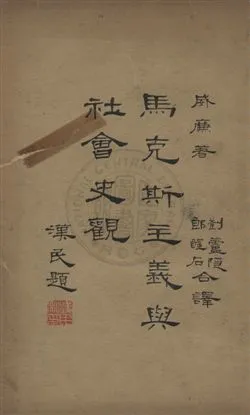 威廉著
劉蘆隱
郎醒石
合譯
馬克斯主義與
社會史觀
漢民題